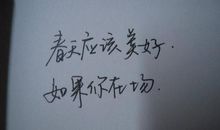 春天应该美好.
如果你在场.